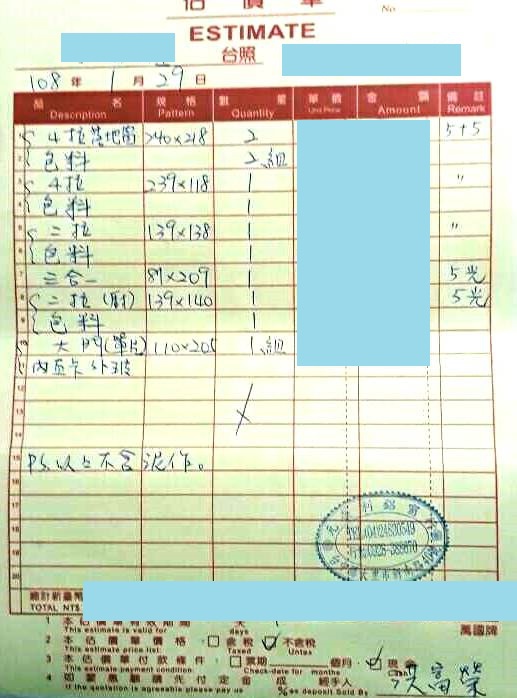 估價單
No
ESTIMATE
台照
108 年 1 月 29 日
品名 規格 數量 單價 金額 備註
Description Pattern Quantity Unit Price Amount Remark
1 4拉落地窗 240x218 2 5+5
2 包料 2組
3 4拉 239x118 1 "
4 包料 1
5 二拉 139x138 1 "
6 包料 1
7 三合一 81x209 1 5光
8 二拉 139x140 1 5光
9 包料 1
10 大門(單片) 110x205 1組
11
12
13
14
15 PS.以上不含泥作。
16
17
18
19
20
總計新臺幣
TOTAL NT$
1 本估價單有效期間 天
This estimate is valid for days
萬國牌
2 本估價單價格: 含稅 不含稅
This estimate price list: Tax Untax
3 本估價單付款條件: 票期 個月 現金
This estimate payment condition: Check-date for months Cash
4 如蒙惠顧請先付定金 成 經手人
If the quotation is agreeable please pay us % as deposit Sold By